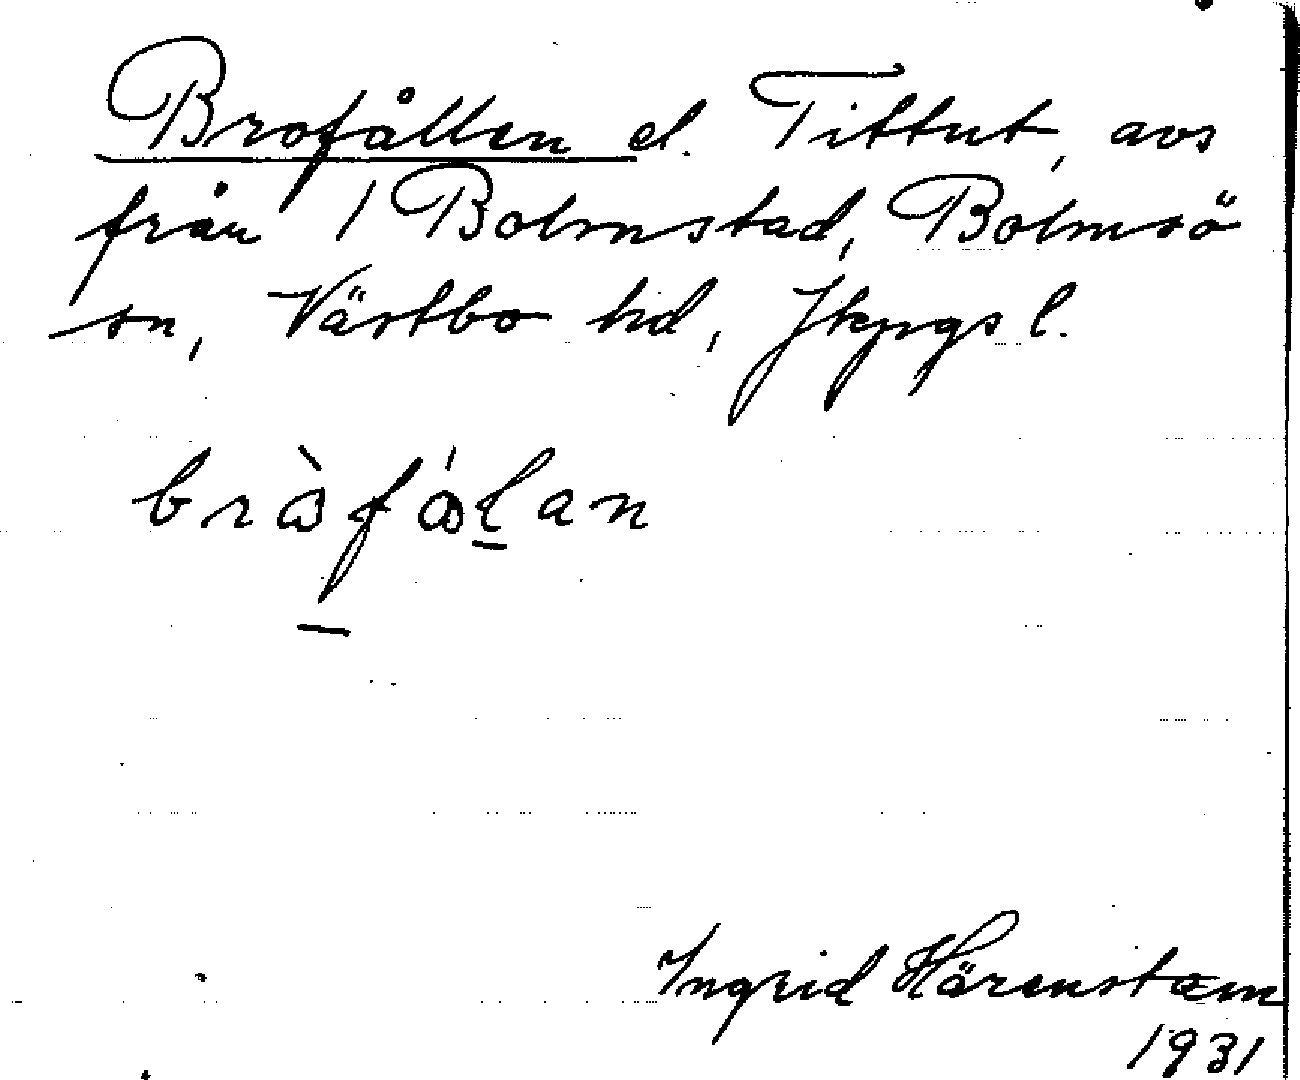 Brofållen el. Tittut, avs
från 1 Bolmstad, Bolmsö
sn, Västbo hd, Jkpgs l.
bråfålan
Ingrid Härenstam
1931